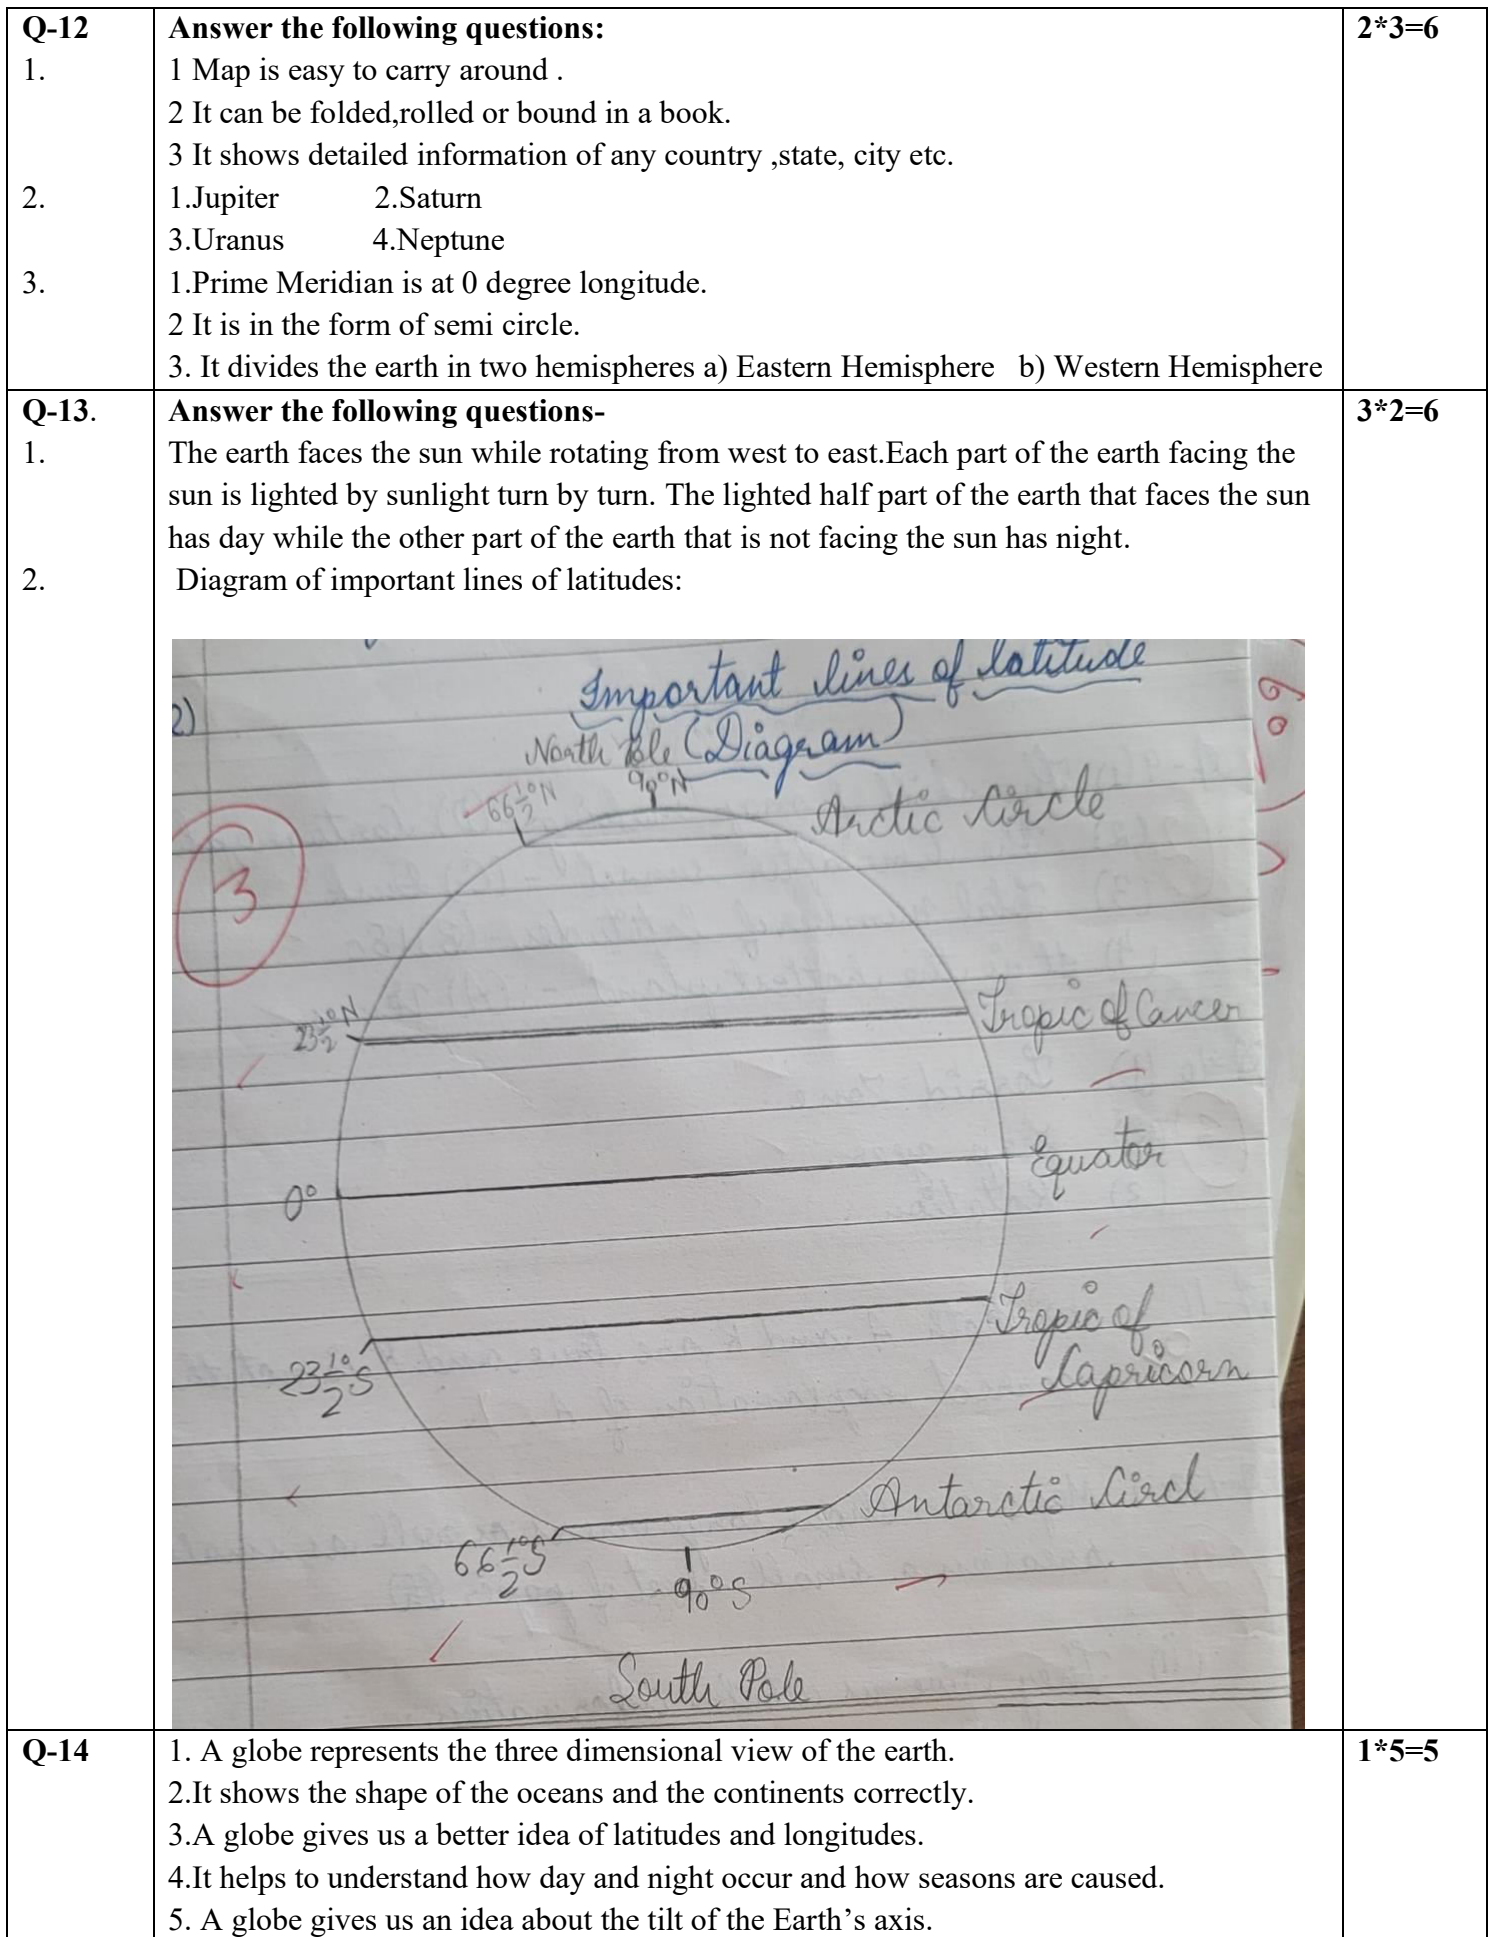 Q-12 Answer the following questions: 2*3=6
1. 1 Map is easy to carry around .
2 It can be folded,rolled or bound in a book.
3 It shows detailed information of any country ,state, city etc.
2. 1.Jupiter 2.Saturn
3.Uranus 4.Neptune
3. 1.Prime Meridian is at 0 degree longitude.
2 It is in the form of semi circle.
3. It divides the earth in two hemispheres a) Eastern Hemisphere b) Western Hemisphere
Q-13. Answer the following questions- 3*2=6
1. The earth faces the sun while rotating from west to east.Each part of the earth facing the
sun is lighted by sunlight turn by turn. The lighted half part of the earth that faces the sun
has day while the other part of the earth that is not facing the sun has night.
2. Diagram of important lines of latitudes:
Important lines of latitude
2)
(Diagram)
North Pole
90°N
66½°N
Arctic Circle
3
23½°N
Tropic of Cancer
Equator
0°
Tropic of
Capricorn
23½°S
Antarctic Circl
66½°S
90°S
South Pole
Q-14 1. A globe represents the three dimensional view of the earth. 1*5=5
2.It shows the shape of the oceans and the continents correctly.
3.A globe gives us a better idea of latitudes and longitudes.
4.It helps to understand how day and night occur and how seasons are caused.
5. A globe gives us an idea about the tilt of the Earth’s axis.